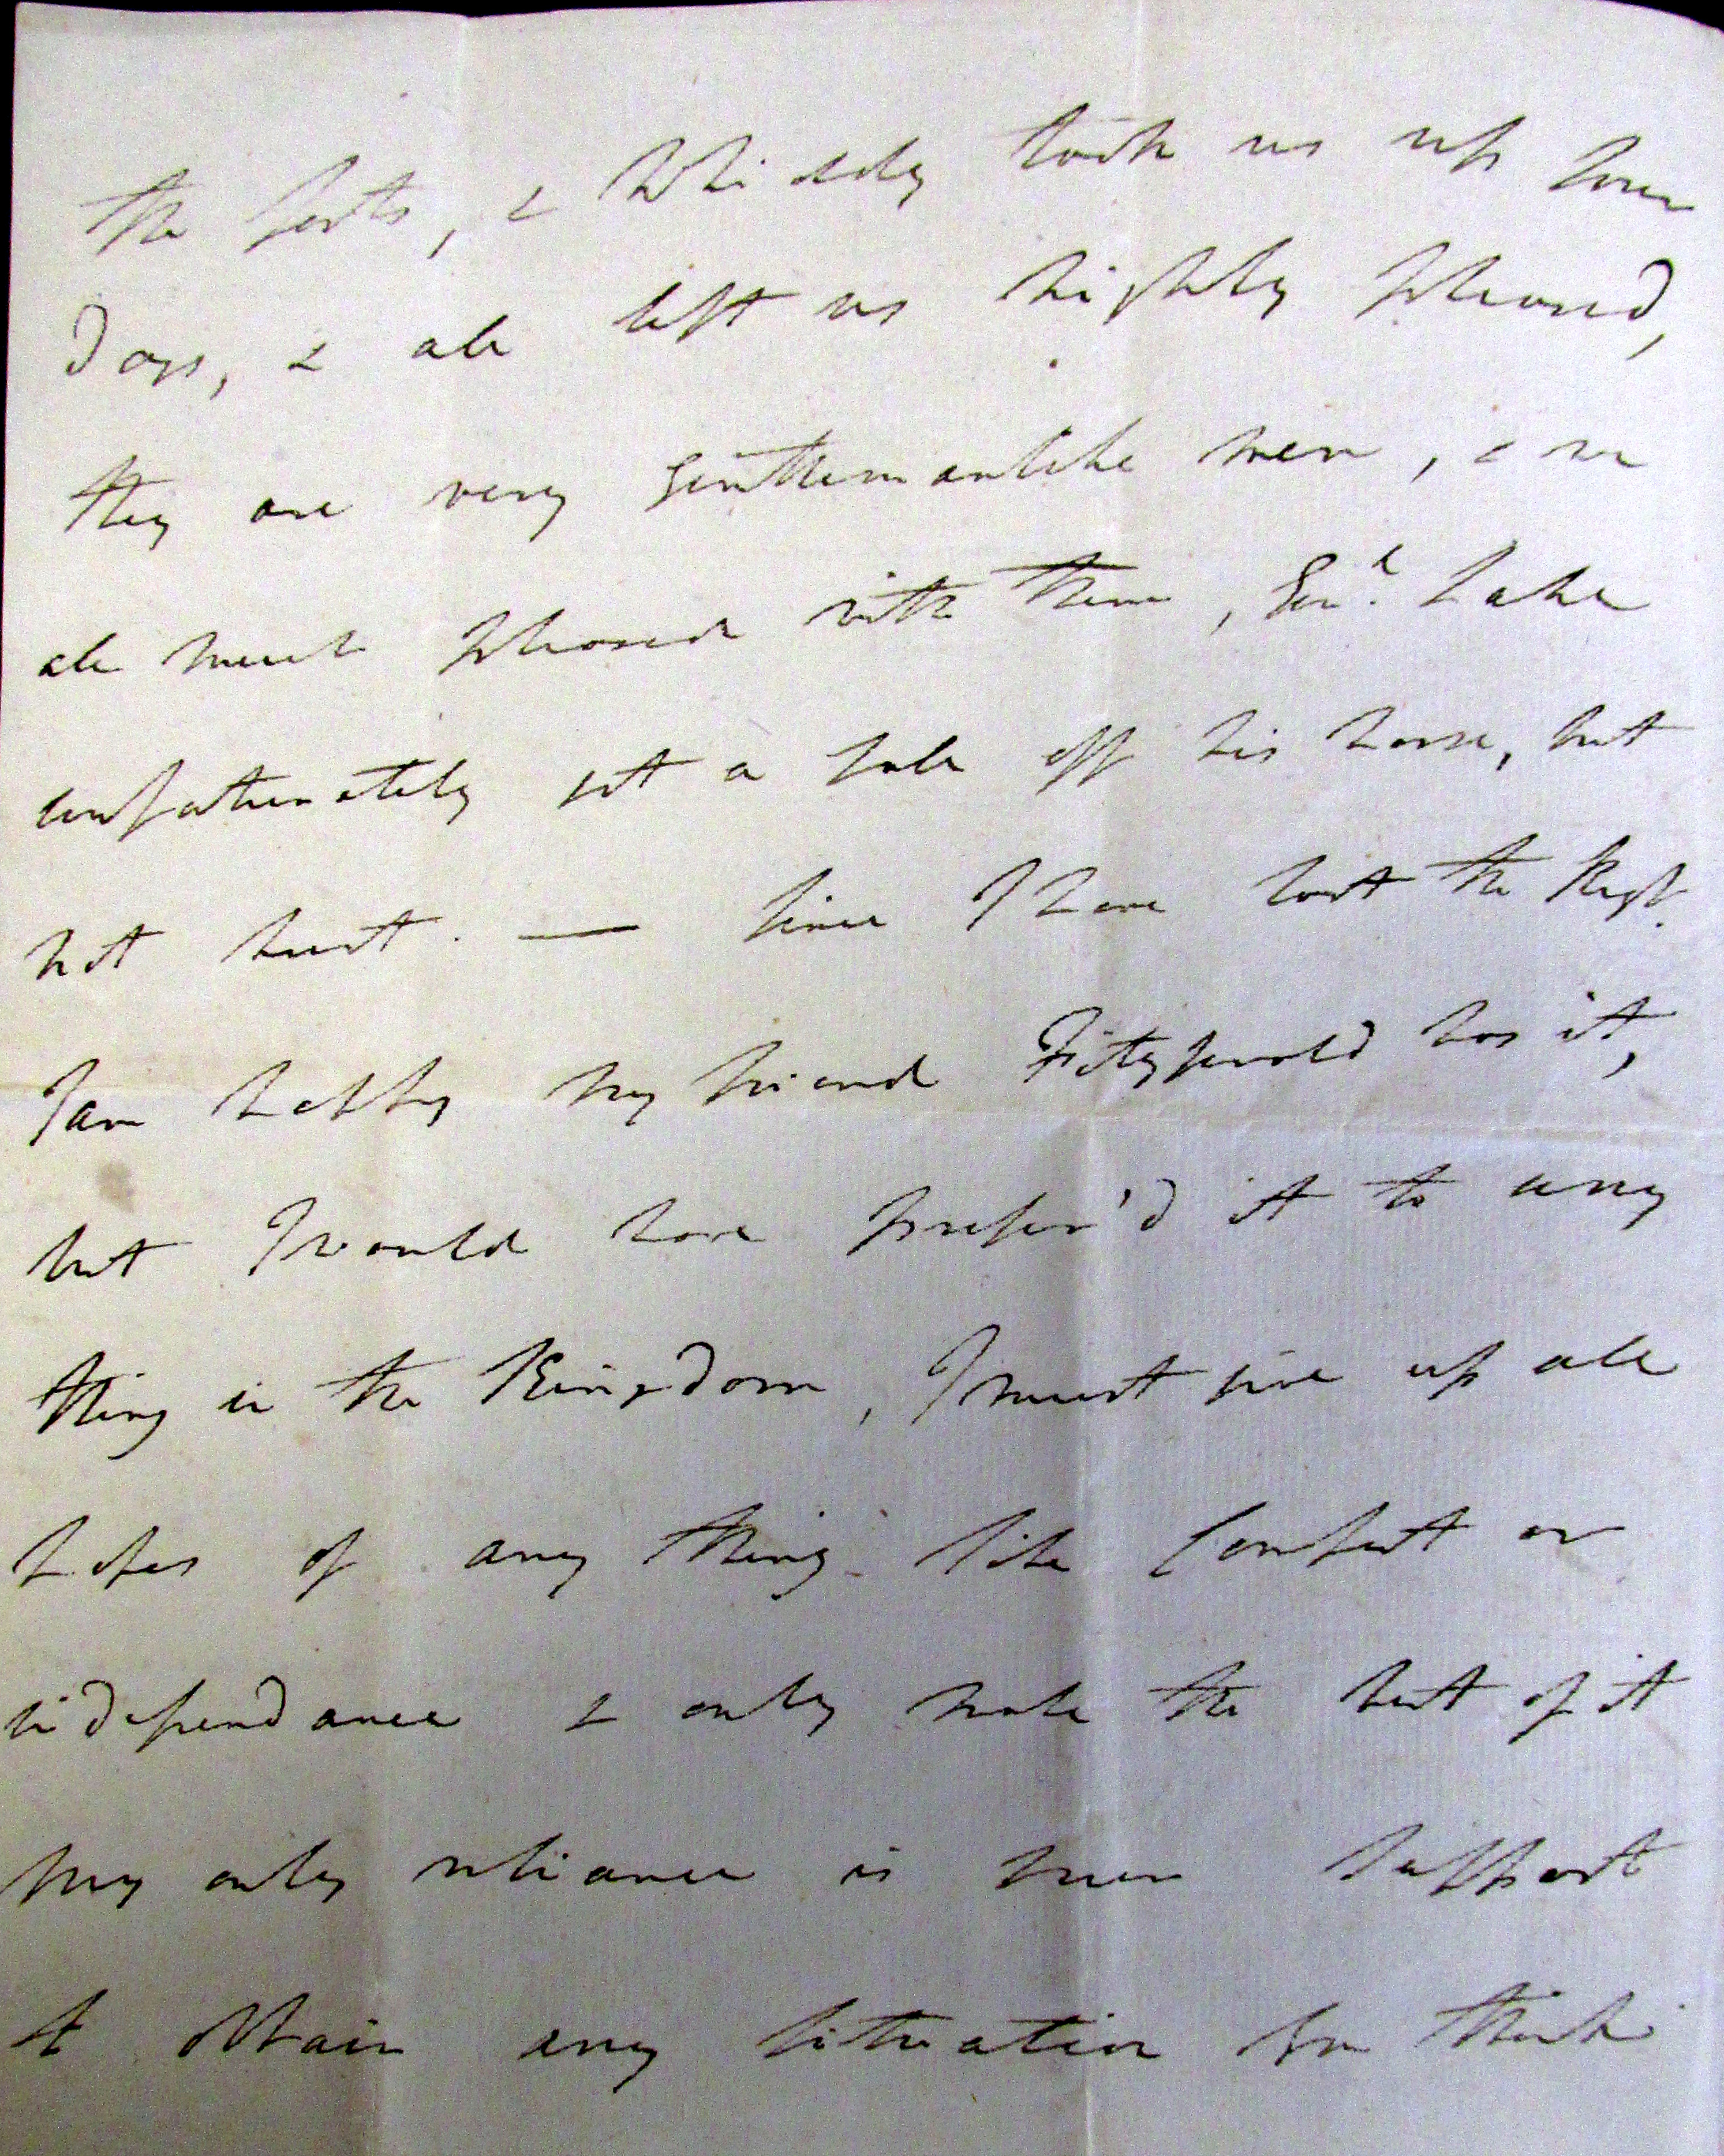 the forts, & Whiddy took us up four
Days, & all left us highly pleased,
they are very Gentlemanlike men, & we
all much pleased with them, Genl. Lake
unfortunately got a fall off his horse, but
not hurt. — Since I have lost the Regt.
I am happy my friend Fitzgerald has it,
but I would have prefer'd it to any
thing in the Kingdom, I must give up all
hopes of any thing like Comfort or
independance & only make the best of it
my only reliance is your support
to obtain any situation you think